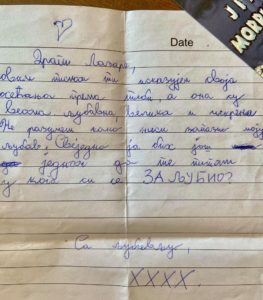 Date
Драги Лазаре,
овим писмом ти исказујем своја
осећања према теби, а она су
веома љубавна, велика и искрена
Не разумем како ниси
љубав. Свједно ја бих још
једном да те питам
у кога си се ЗАЉУБИО?
Са љубављу,
XXXX.